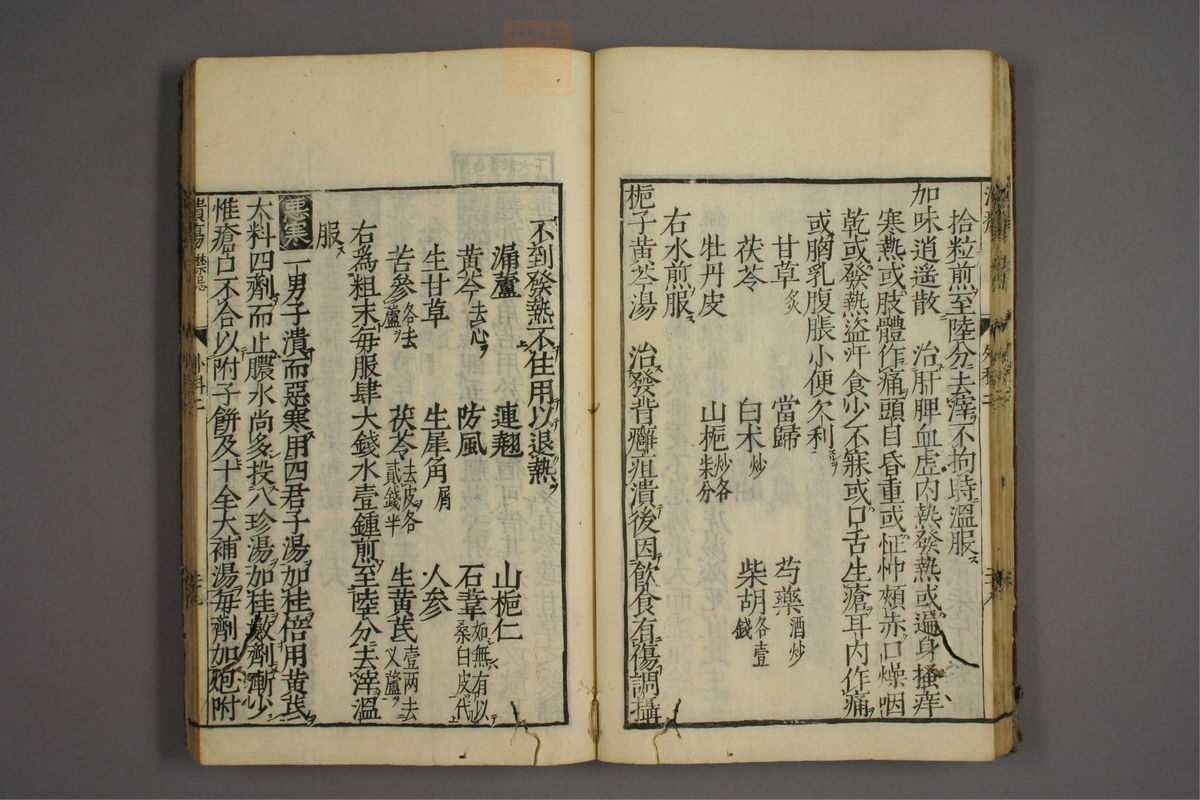 拾粒煎至陸分去滓不拘時溫服
加味逍遙散 治肝脾血虛內熱發熱或遍身搔痒
寒熱或肢體作痛頭目昏重或怔忡頰赤口燥咽
乾或發熱盜汗食少不寐或口舌生瘡耳內作痛
或胸乳腹脹小便欠利
甘草炙 當歸 芍藥酒炒
茯苓 白朮炒 柴胡各壹錢
牡丹皮 山梔炒各柒分
右水煎服
梔子黃芩湯 治發背癰疽潰後因飲食有傷調攝
不到發熱不住用以退熱
漏蘆 連翹 山梔仁
黃芩去心 防風 石韋如無有以桑白皮代
生甘草 生犀角屑 人參
苦參各去蘆 茯苓去皮各貳錢半 生黃芪壹兩去叉蘆
右為粗末每服肆大錢水壹鍾煎至陸分去滓溫
服
惡寒 一男子潰而惡寒用四君子湯加桂倍用黃芪
大料四劑而止膿水尚多投八珍湯加桂數劑漸少
惟瘡口不合以附子餅及十全大補湯每劑加炮附
潰瘍 禁忌 外科二